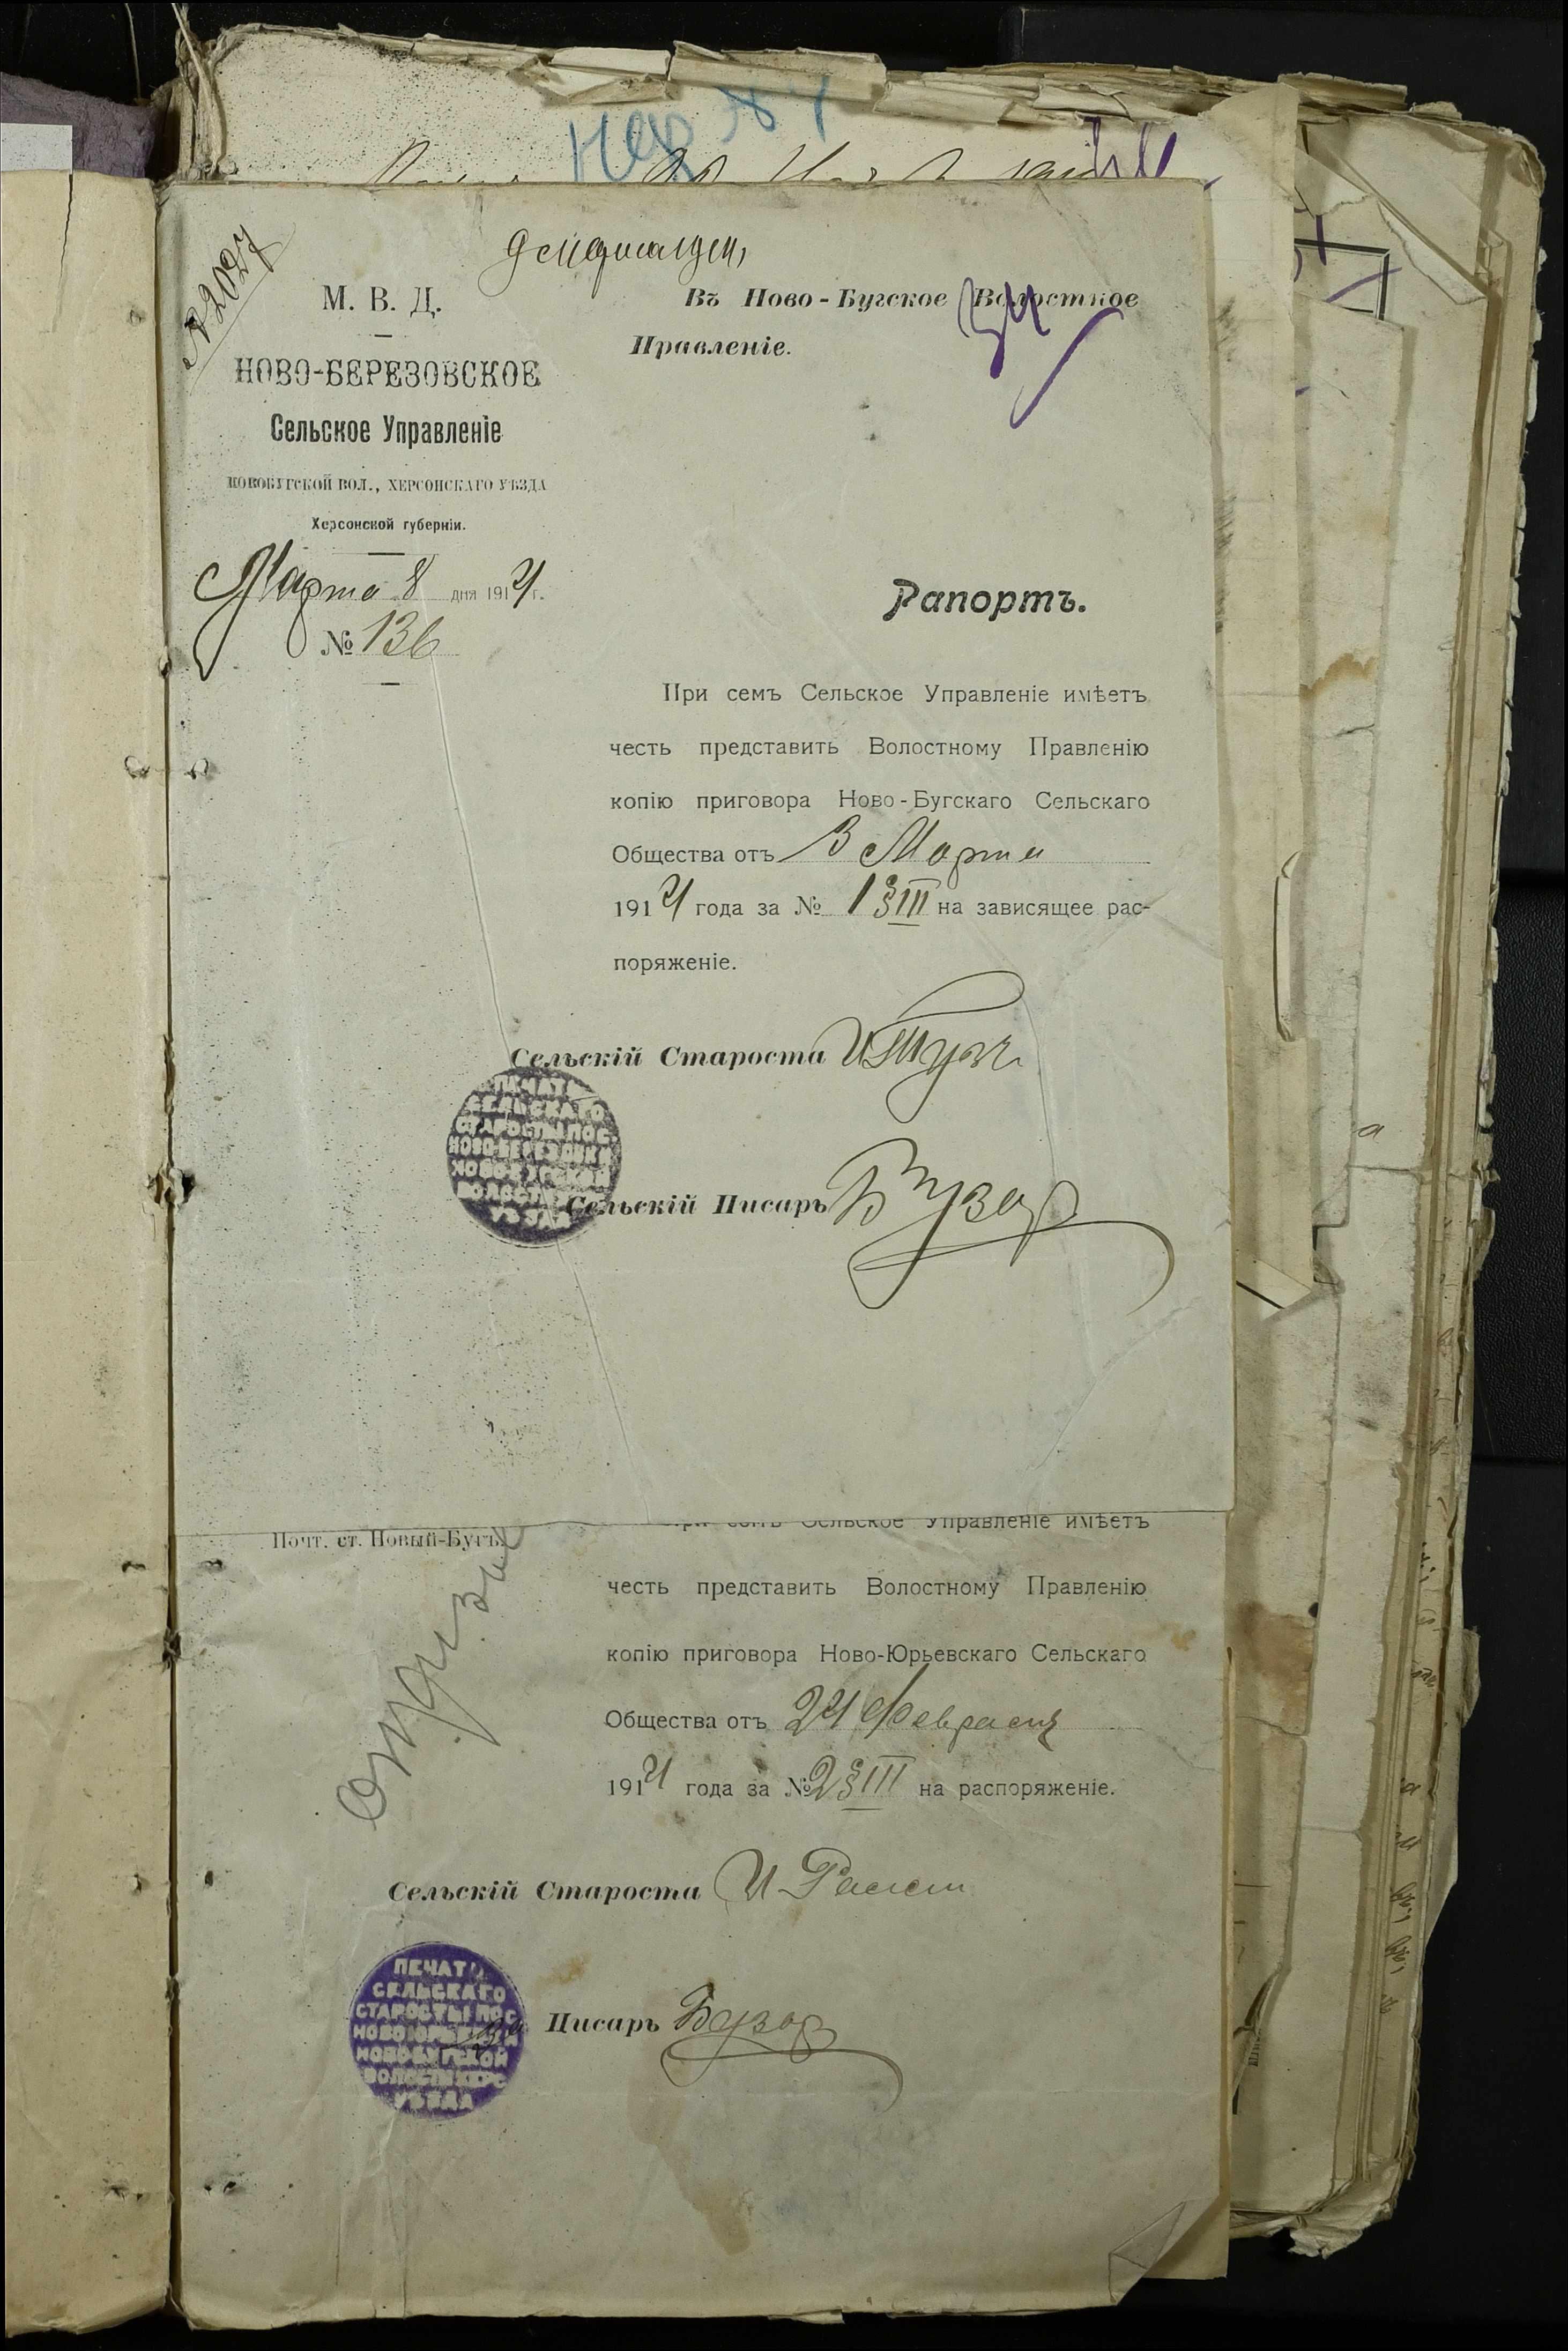 № 2027
М. В. Д.
НОВО-БЕРЕЗОВСКОЕ
Сельское Управленіе
НОВОБУГСКОЙ ВОЛ., ХЕРСОНСКАГО УѢЗДА
Херсонской губерніи.
Марта 8 дня 1914 г.
№ 136
Въ Ново-Бугское Волостное
Правленіе.
Рапортъ.
При семъ Сельское Управленіе имѣетъ
честь представить Волостному Правленію
копію приговора Ново-Бугскаго Сельскаго
Общества отъ 3 Марта
1914 года за № 1 § III на зависящее рас-
поряженіе.
Сельскій Староста
ПЕЧАТЬ
СЕЛЬСКАГО
СТАРОСТЫ ПОС.
НОВО-БЕРЕЗОВКИ
НОВОБУГСКОЙ
ВОЛОСТИ
УѢЗДА
Сельскій Писарь Бузор
Почт. ст. Новый-Бугъ.
При семъ Сельское Управленіе имѣетъ
честь представить Волостному Правленію
копію приговора Ново-Юрьевскаго Сельскаго
Общества отъ 24 Февраля
1914 года за № 2 § III на распоряженіе.
Сельскій Староста И
ПЕЧАТЬ
СЕЛЬСКАГО
СТАРОСТЫ ПОС
НОВОЮРЬЕВКИ
НОВОБУГСКОЙ
ВОЛОСТИ ХЕРС
УѢЗДА
Писарь Бузор